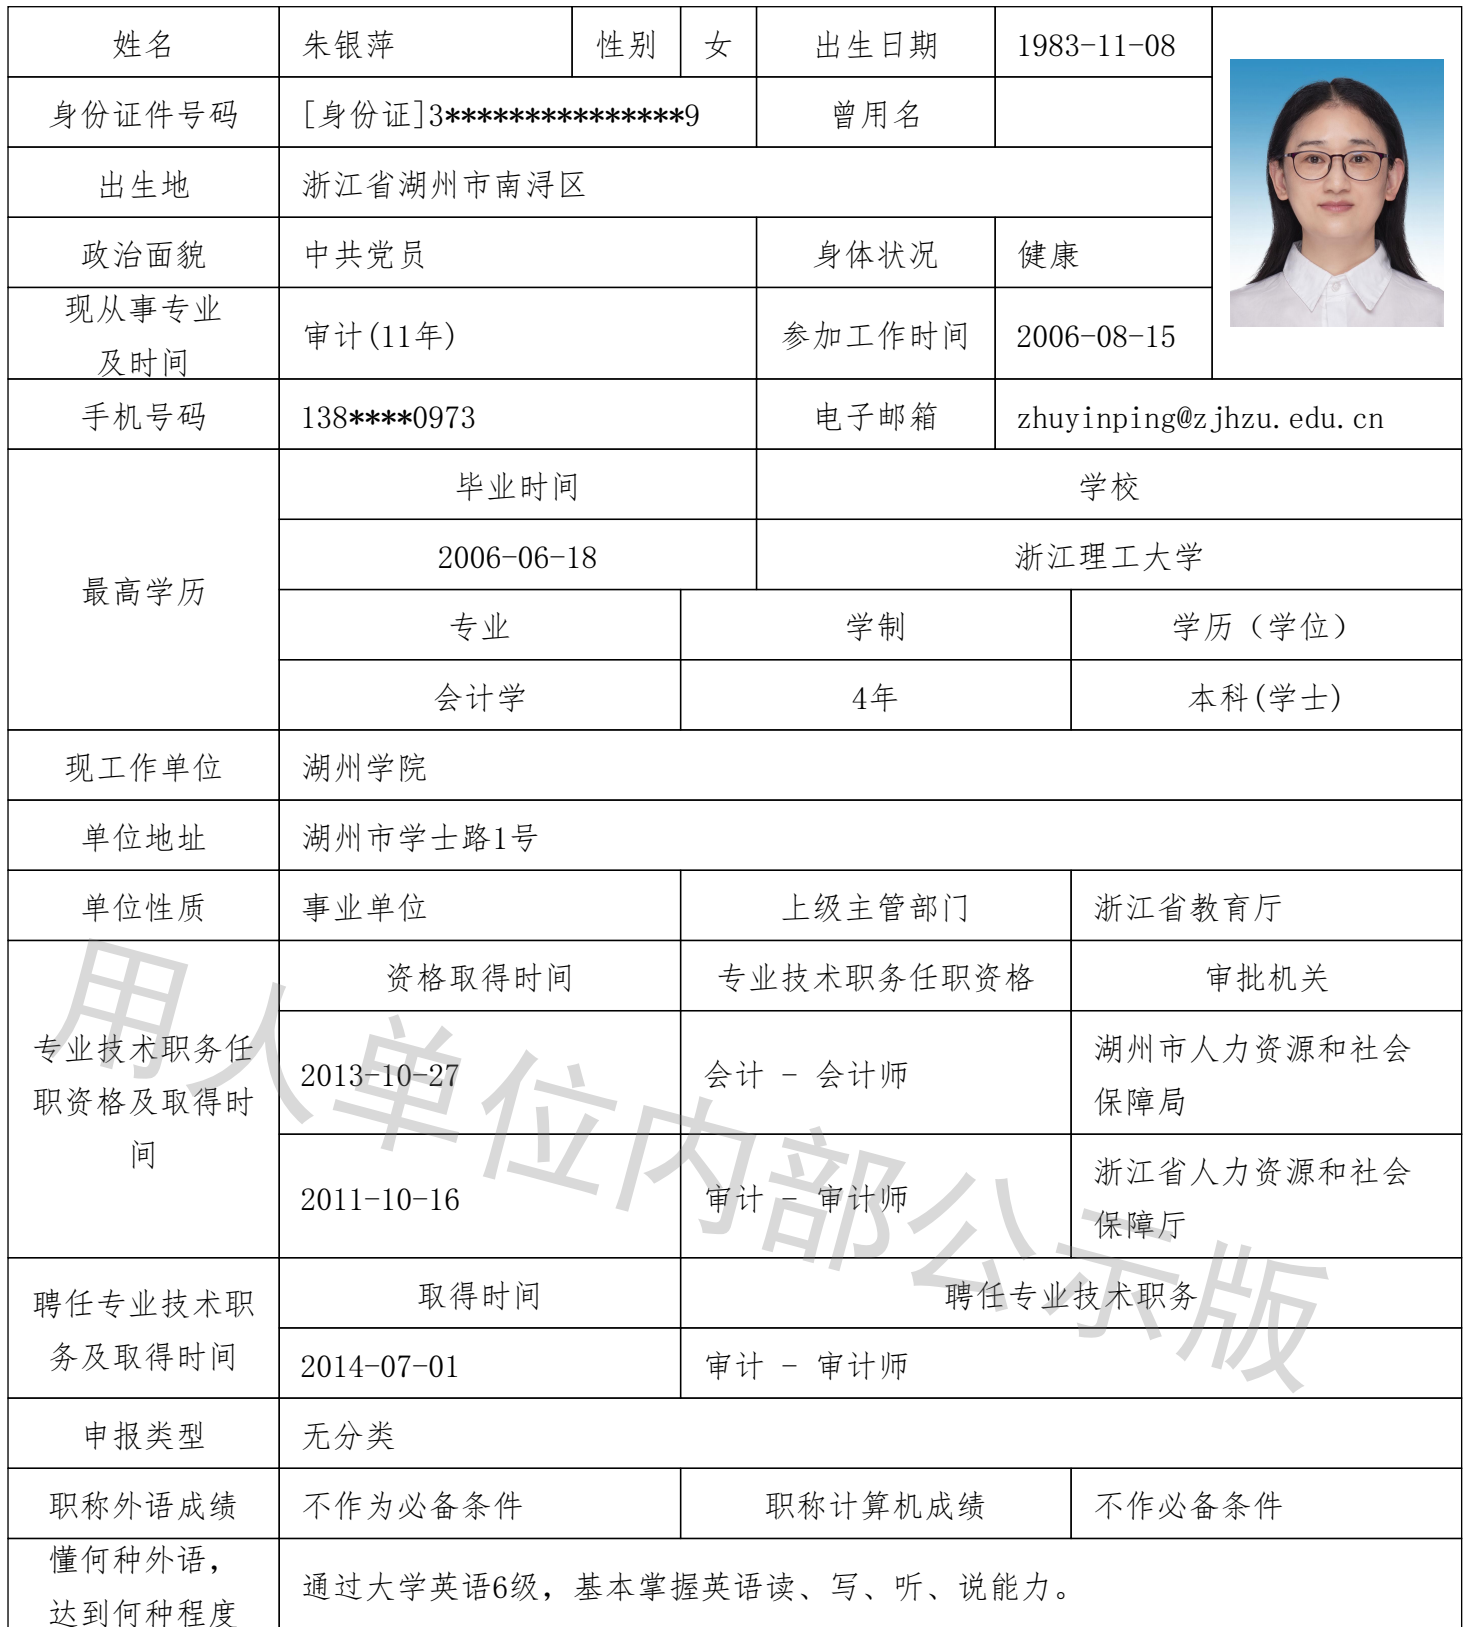 姓名 朱银萍 性别 女 出生日期 1983-11-08
身份证件号码 [身份证]3***************9 曾用名
出生地 浙江省湖州市南浔区
政治面貌 中共党员 身体状况 健康
现从事专业
及时间
审计(11年) 参加工作时间 2006-08-15
手机号码 138****0973 电子邮箱 zhuyinping@zjhzu.edu.cn
最高学历
毕业时间 学校
2006-06-18 浙江理工大学
专业 学制 学历（学位）
会计学 4年 本科(学士)
现工作单位 湖州学院
单位地址 湖州市学士路1号
单位性质 事业单位 上级主管部门 浙江省教育厅
专业技术职务任
职资格及取得时
间
资格取得时间 专业技术职务任职资格 审批机关
2013-10-27 会计 - 会计师 湖州市人力资源和社会
保障局
2011-10-16 审计 - 审计师 浙江省人力资源和社会
保障厅
聘任专业技术职
务及取得时间
取得时间 聘任专业技术职务
2014-07-01 审计 - 审计师
申报类型 无分类
职称外语成绩 不作为必备条件 职称计算机成绩 不作必备条件
懂何种外语，
达到何种程度
通过大学英语6级，基本掌握英语读、写、听、说能力。
用人单位内部公示版